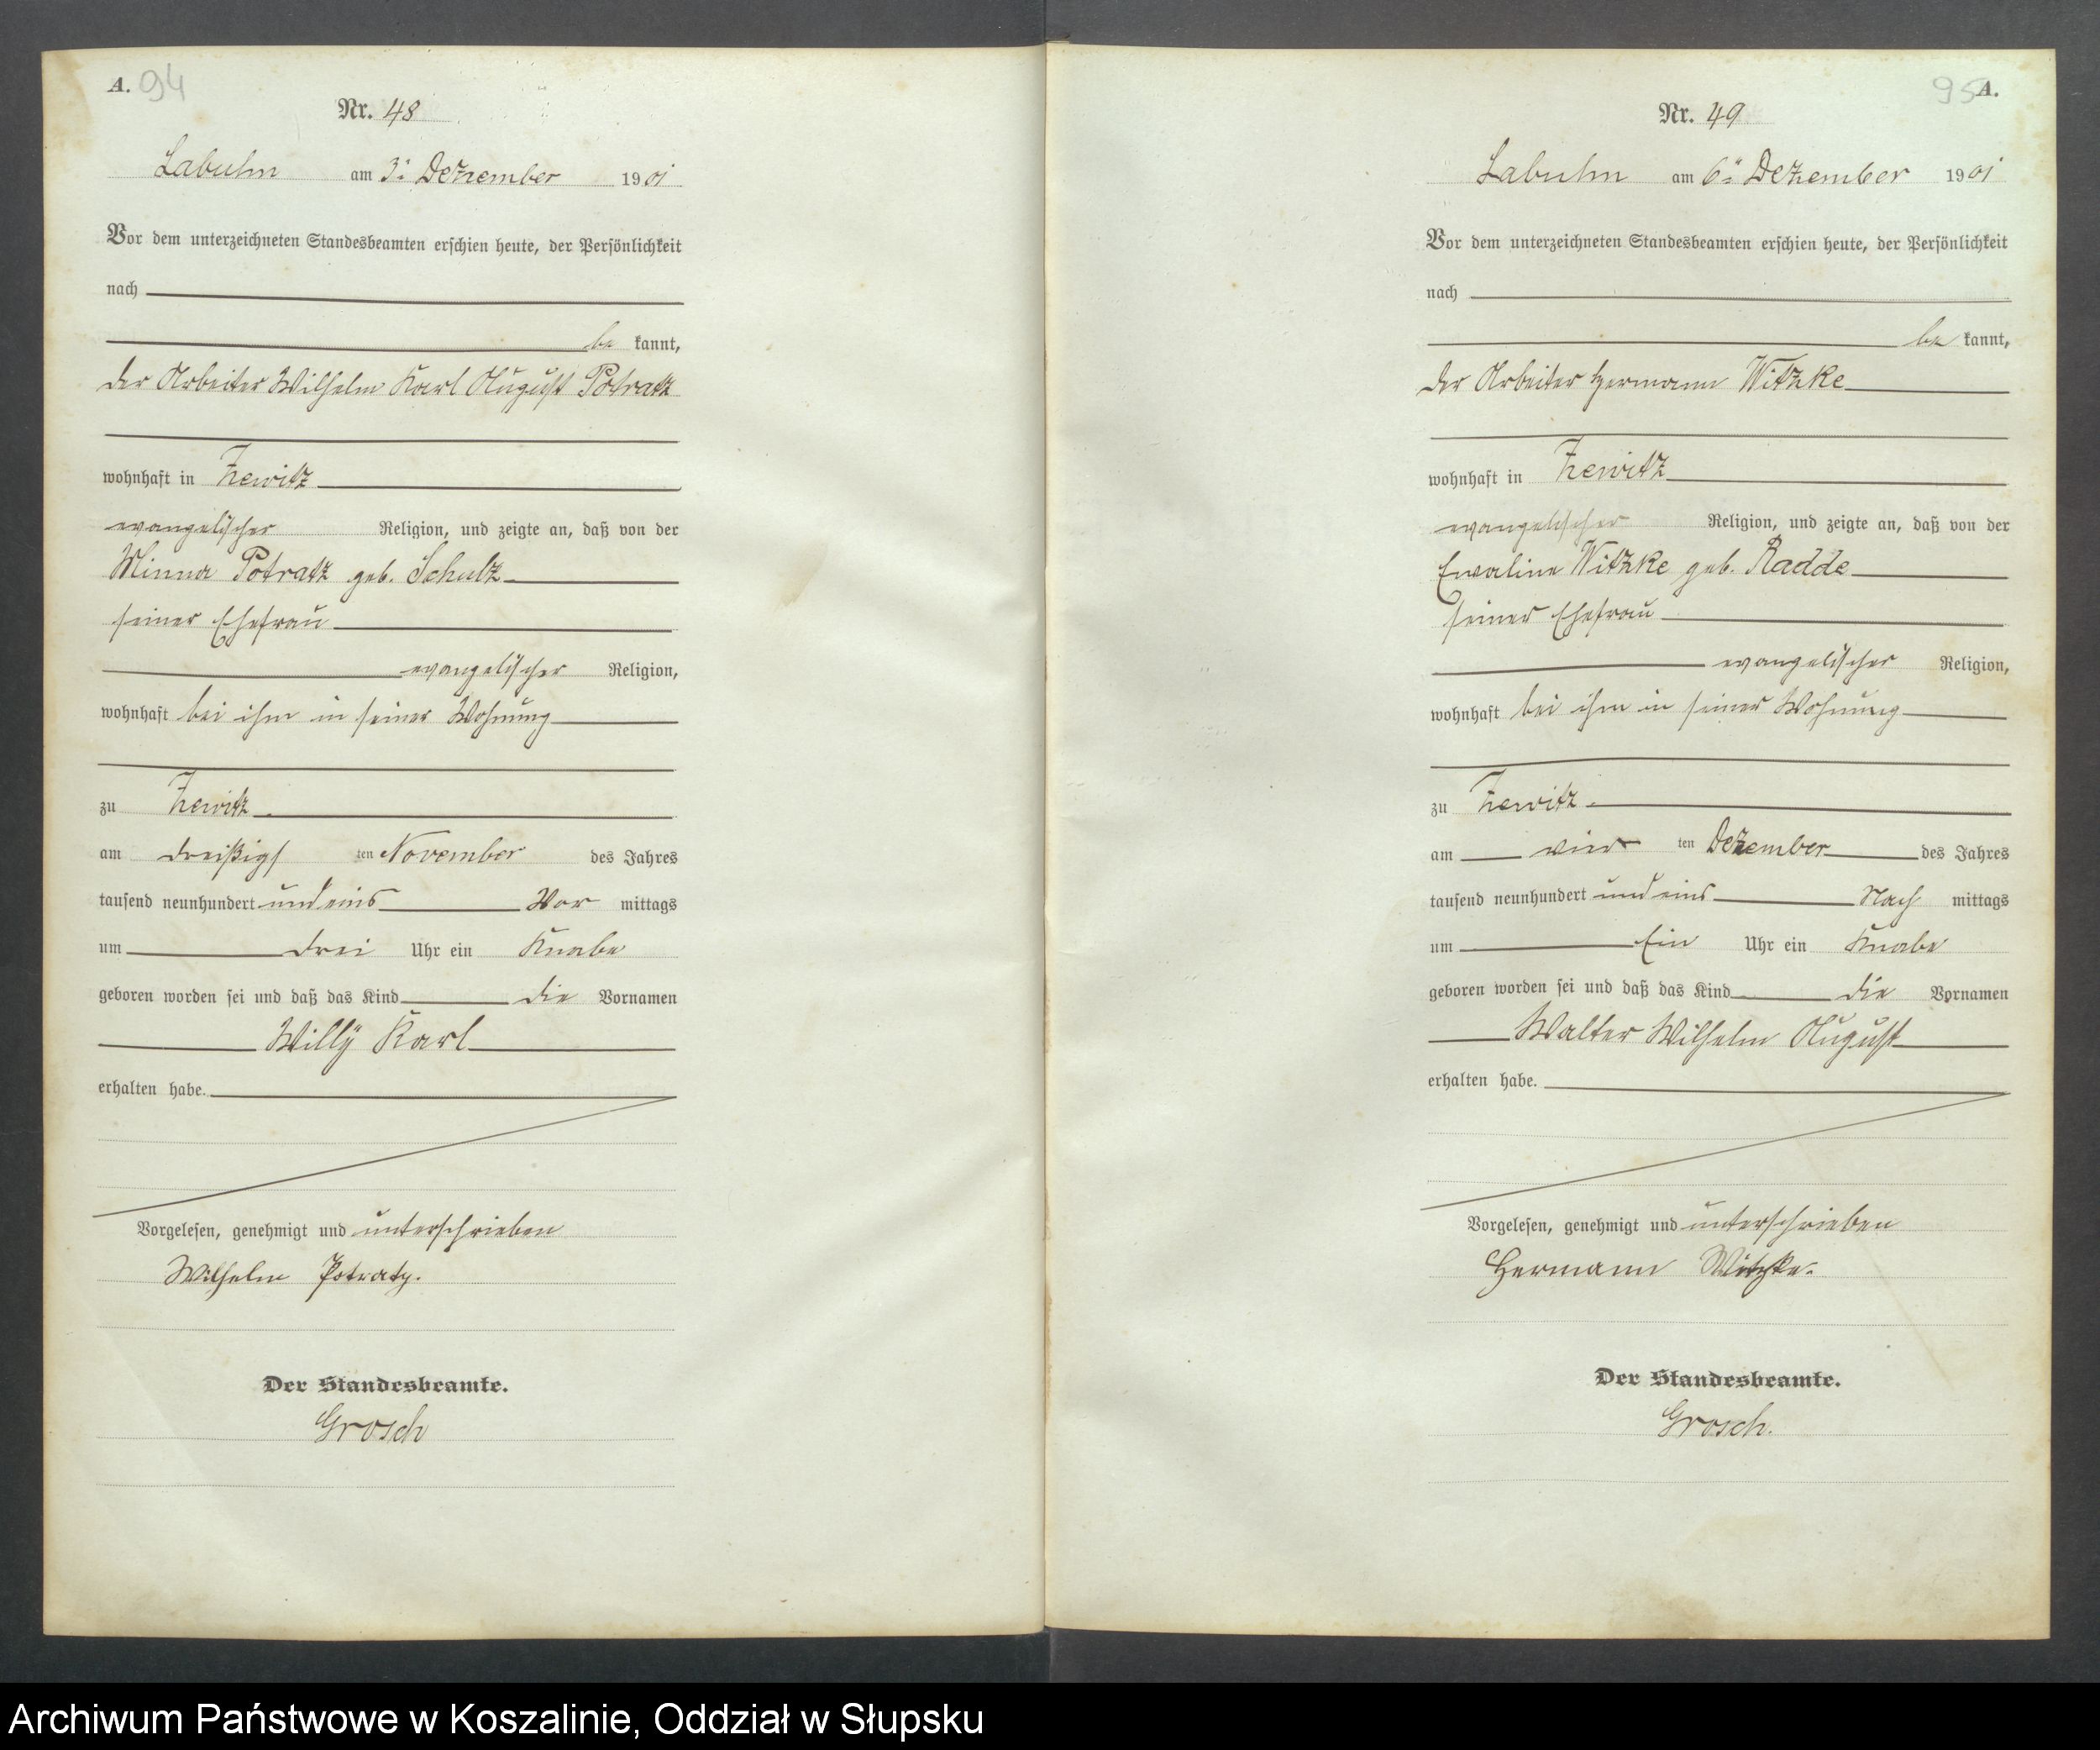 A. 94
Nr. 48
Labuhn am 3. Dezember 1901
Vor dem unterzeichneten Standesbeamten erschien heute, der Persönlichkeit
nach
be kannt,
der Arbeiter Wilhelm Karl August Potratz
wohnhaft in Zewitz
evangelischer Religion, und zeigte an, daß von der
Minna Potratz geb. Schulz
seiner Ehefrau
evangelischer Religion,
wohnhaft bei ihm in seiner Wohnung
zu Zewitz
am dreißigs ten November des Jahres
tausend neunhundert und eins Vor mittags
um drei Uhr ein Knabe
geboren worden sei und daß das Kind die Vornamen
Willy Karl
erhalten habe.
Vorgelesen, genehmigt und unterschrieben
Wilhelm Potratz.
Der Standesbeamte.
Grosch
95 A.
Nr. 49
Labuhn am 6. Dezember 1901
Vor dem unterzeichneten Standesbeamten erschien heute, der Persönlichkeit
nach
be kannt,
der Arbeiter Hermann Witzke
wohnhaft in Zewitz
evangelischer Religion, und zeigte an, daß von der
Ewaline Witzke geb. Radde
seiner Ehefrau
evangelischer Religion,
wohnhaft bei ihm in seiner Wohnung
zu Zewitz.
am vier ten Dezember des Jahres
tausend neunhundert und eins Nach mittags
um Ein Uhr ein Knabe
geboren worden sei und daß das Kind die Vornamen
Walter Wilhelm August
erhalten habe.
Vorgelesen, genehmigt und unterschrieben
Hermann Witzke.
Der Standesbeamte.
Grosch.
Archiwum Państwowe w Koszalinie, Oddział w Słupsku